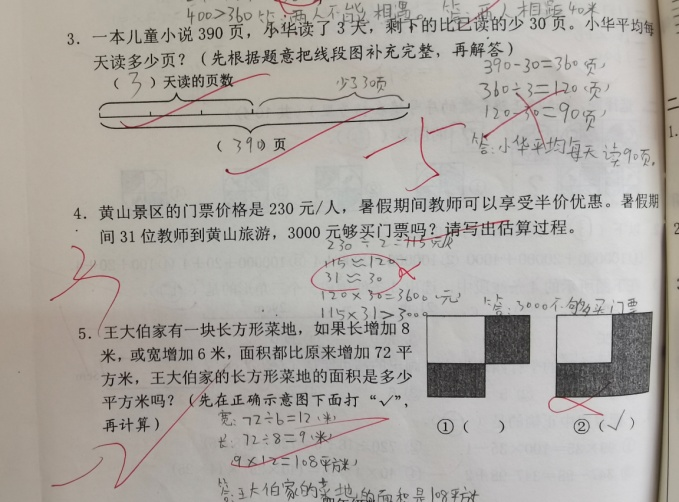 400>360 答:两人不能相遇。 答:两人相距40米
3. 一本儿童小说 390 页，小华读了 3 天，剩下的比已读的少 30 页。小华平均每
天读多少页？（先根据题意把线段图补充完整，再解答）
（ 3 ）天读的页数 少30页
（ 390 ）页
390-30=360(页)
360÷3=120(页)
120-30=90(页)
答:小华平均每天读90页。
4. 黄山景区的门票价格是 230 元/人，暑假期间教师可以享受半价优惠。暑假期
间 31 位教师到黄山旅游，3000 元够买门票吗？请写出估算过程。
230÷2=115
115≈120
31≈30
120×30=3600(元)
115×31>3000
答:3000不够买门票
5. 王大伯家有一块长方形菜地，如果长增加 8
米，或宽增加 6 米，面积都比原来增加 72 平
方米，王大伯家的长方形菜地的面积是多少
平方米吗？（先在正确示意图下面打“✓”，
再计算）
①（ ） ②（✓）
宽:72÷6=12(米)
长:72÷8=9(米)
9×12=108(平方米)
答:王大伯家的菜地的面积是108平方米